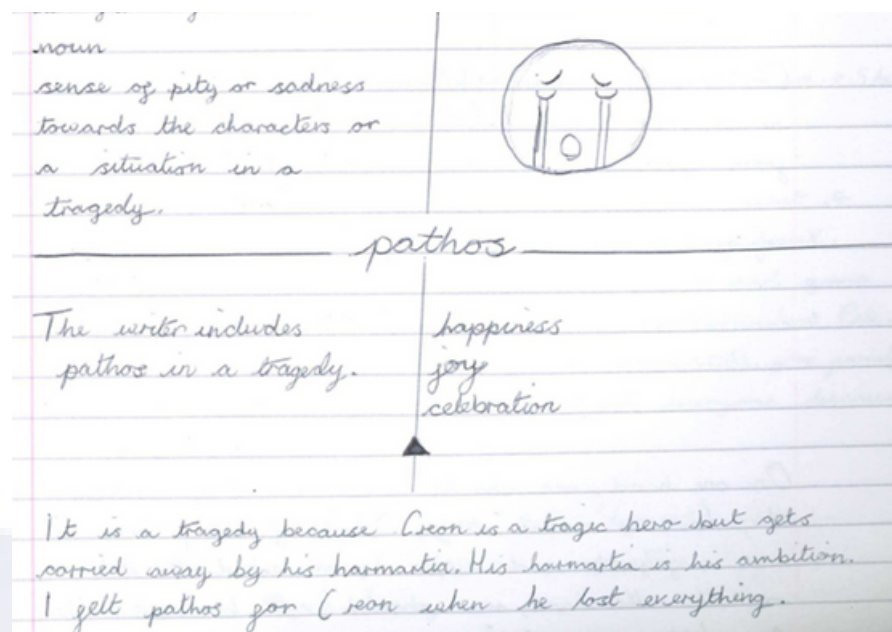 noun
sense of pity or sadness
towards the characters or
a situation in a
tragedy.
pathos
The writer includes
pathos in a tragedy.
happiness
joy
celebration
It is a tragedy because Creon is a tragic hero but gets
carried away by his harmartia. His harmartia is his ambition.
I felt pathos for Creon when he lost everything.